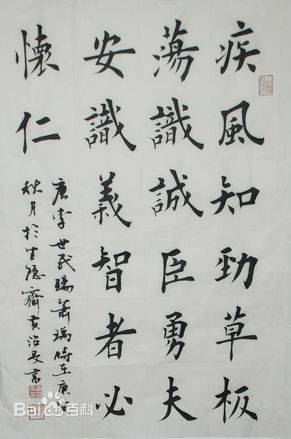 疾風知勁草板
蕩識誠臣勇夫
安識義智者必
懷仁
唐李世民賜蕭瑀時在庚
秋月於
齋黃
書
Baidu百科